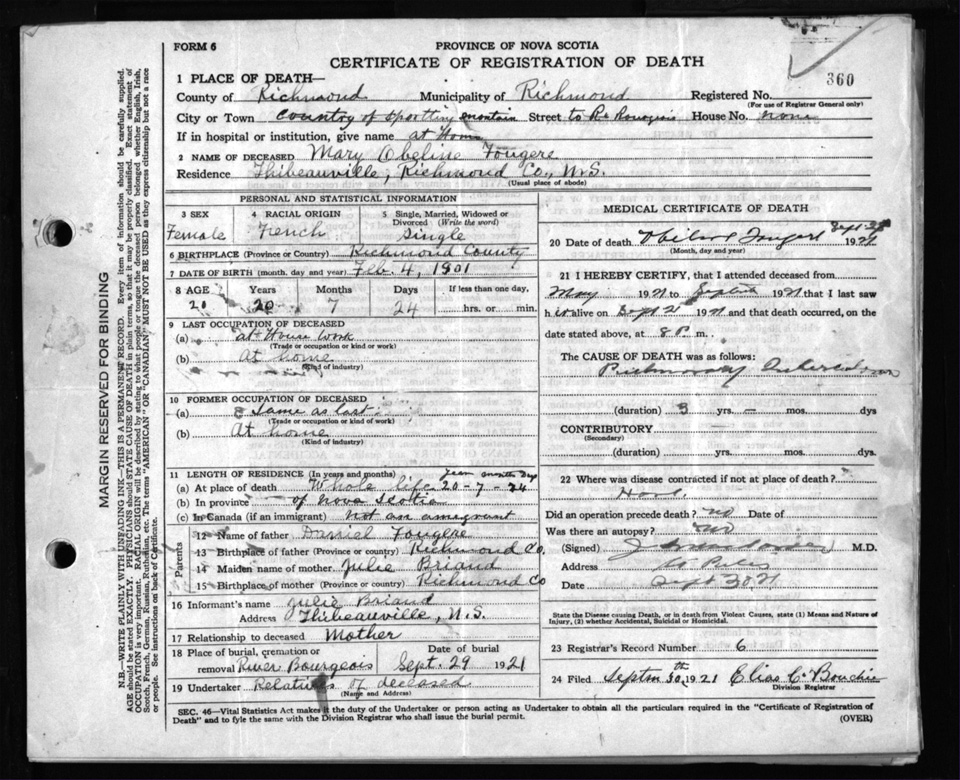 FORM 6
PROVINCE OF NOVA SCOTIA
CERTIFICATE OF REGISTRATION OF DEATH
360
1 PLACE OF DEATH—
County of Richmond Municipality of Richmond Registered No.
(For use of Registrar General only)
City or Town Country of Sportting mountain Street to R. Bourgeois House No. none
If in hospital or institution, give name at Home
2 NAME OF DECEASED Mary Obeline Fougere
Residence Thibeauville, Richmond Co., N.S.
(Usual place of abode)
PERSONAL AND STATISTICAL INFORMATION
3 SEX 4 RACIAL ORIGIN 5 Single, Married, Widowed or Divorced (Write the word)
Female French Single
6 BIRTHPLACE (Province or Country) Richmond County
7 DATE OF BIRTH (month, day and year) Feb. 4, 1901
8 AGE Years Months Days If less than one day,
20 20 7 24 hrs. or min.
9 LAST OCCUPATION OF DECEASED
(a) at House work
(Trade or occupation or kind or work)
(b) At home
(Kind of industry)
10 FORMER OCCUPATION OF DECEASED
(a) Same as last
(Trade or occupation or kind of work)
(b) At home
(Kind of industry)
11 LENGTH OF RESIDENCE (In years and months) years months days
(a) At place of death Whole life 20-7-24
(b) In province of Nova Scottia
(c) In Canada (if an immigrant) Not an amegrant
Parents
12 Name of father Daniel Fougere
13 Birthplace of father (Province or country) Richmond Co.
14 Maiden name of mother Julie Briand
15 Birthplace of mother (Province or country) Richmond Co
16 Informant's name Julie Briand
Address Thibeauville, N.S.
17 Relationship to deceased Mother
18 Place of burial, cremation or removal River Bourgeois Date of burial Sept. 29 1921
19 Undertaker Relatives of deceased
(Name and Address)
MEDICAL CERTIFICATE OF DEATH
20 Date of death Sept 1921
(Month, day and year)
21 I HEREBY CERTIFY, that I attended deceased from
May 1921 to 1921 that I last saw
h alive on Sept 21 1921 and that death occurred, on the
date stated above, at 8 P. m.
The CAUSE OF DEATH was as follows:
Pulmonary Tuberculosis
(duration) 3 yrs. — mos. dys
CONTRIBUTORY —
(Secondary)
(duration) yrs. mos. dys
22 Where was disease contracted if not at place of death?
Did an operation precede death? no Date of
Was there an autopsy? no
(Signed) M.D.
Address St Peters
Date Sept 30 21
State the Disease causing Death, or in death from Violent Causes, state (1) Means and Nature of
Injury, (2) whether Accidental, Suicidal or Homicidal.
23 Registrar's Record Number 6
24 Filed Septm 30th 1921 Elias C. Bouchie
Division Registrar
SEC. 46—Vital Statistics Act makes it the duty of the Undertaker or person acting as Undertaker to obtain all the particulars required in the "Certificate of Registration of
Death" and to fyle the same with the Division Registrar who shall issue the burial permit.
(OVER)
MARGIN RESERVED FOR BINDING
N.B.—WRITE PLAINLY WITH UNFADING INK—THIS IS A PERMANENT RECORD. Every item of information should be carefully supplied.
AGE should be stated EXACTLY. PHYSICIANS should STATE CAUSE OF DEATH in plain terms, so that it may be properly classified. Exact statement of
OCCUPATION is very important. RACIAL ORIGIN will be described by stating to what people or tongue the deceased person belonged whether English, Irish,
Scotch, French, German, Russian, Ruthenian, etc. The terms "AMERICAN" or "CANADIAN" MUST NOT BE USED as they express citizenship but not a race
or people. See instructions on back of Certificate.